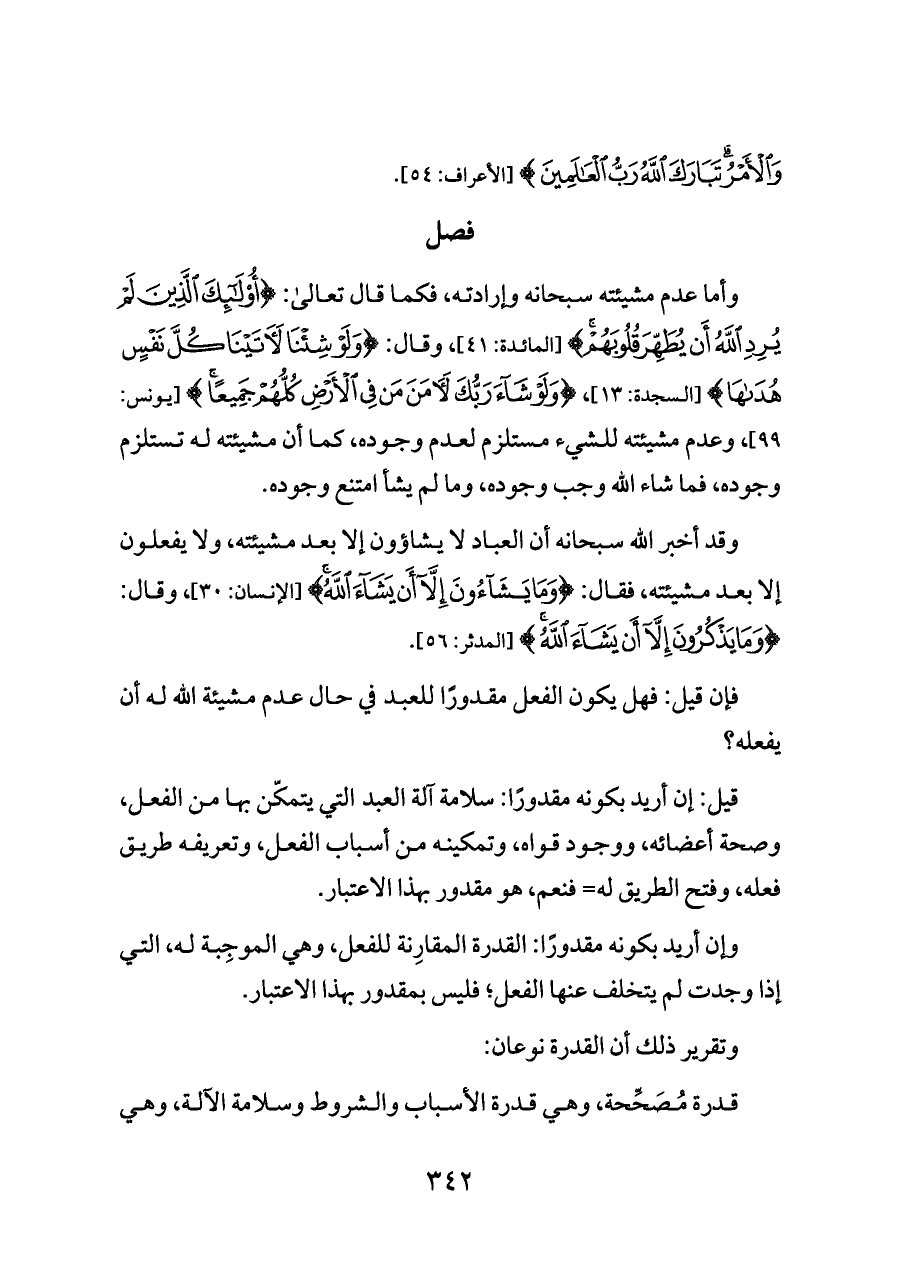 وَالْأَمْرُ تَبَارَكَ اللَّهُ رَبُّ الْعَالَمِينَ ﴾ [الأعراف: ٥٤].
فصل
وأما عدم مشيئته سبحانه وإرادته، فكما قال تعالىٰ: ﴿أُوْلَٰٓئِكَ ٱلَّذِينَ لَمْ
يُرِدِ ٱللَّهُ أَن يُطَهِّرَ قُلُوبَهُمْۚ﴾ [المائدة: ٤١]، وقال: ﴿وَلَوْ شِئْنَا لَأٓتَيْنَا كُلَّ نَفْسٍ
هُدَىٰهَا﴾ [السجدة: ١٣]، ﴿وَلَوْ شَآءَ رَبُّكَ لَأٓمَنَ مَن فِي ٱلْأَرْضِ كُلُّهُمْ جَمِيعًاۚ﴾ [يونس:
٩٩]، وعدم مشيئته للشيء مستلزم لعدم وجوده، كما أن مشيئته له تستلزم
وجوده، فما شاء الله وجب وجوده، وما لم يشأ امتنع وجوده.
وقد أخبر الله سبحانه أن العباد لا يشاؤون إلا بعد مشيئته، ولا يفعلون
إلا بعد مشيئته، فقال: ﴿وَمَا يَشَآءُونَ إِلَّآ أَن يَشَآءَ ٱللَّهُۚ﴾ [الإنسان: ٣٠]، وقال:
﴿وَمَا يَذْكُرُونَ إِلَّآ أَن يَشَآءَ ٱللَّهُۚ﴾ [المدثر: ٥٦].
فإن قيل: فهل يكون الفعل مقدورًا للعبد في حال عدم مشيئة الله له أن
يفعله؟
قيل: إن أريد بكونه مقدورًا: سلامة آلة العبد التي يتمكّن بها من الفعل،
وصحة أعضائه، ووجود قواه، وتمكينه من أسباب الفعل، وتعريفه طريق
فعله، وفتح الطريق له= فنعم، هو مقدور بهذا الاعتبار.
وإن أريد بكونه مقدورًا: القدرة المقارِنة للفعل، وهي الموجِبة له، التي
إذا وجدت لم يتخلف عنها الفعل؛ فليس بمقدور بهذا الاعتبار.
وتقرير ذلك أن القدرة نوعان:
قدرة مُصَحِّحة، وهي قدرة الأسباب والشروط وسلامة الآلة، وهي
٣٤٢